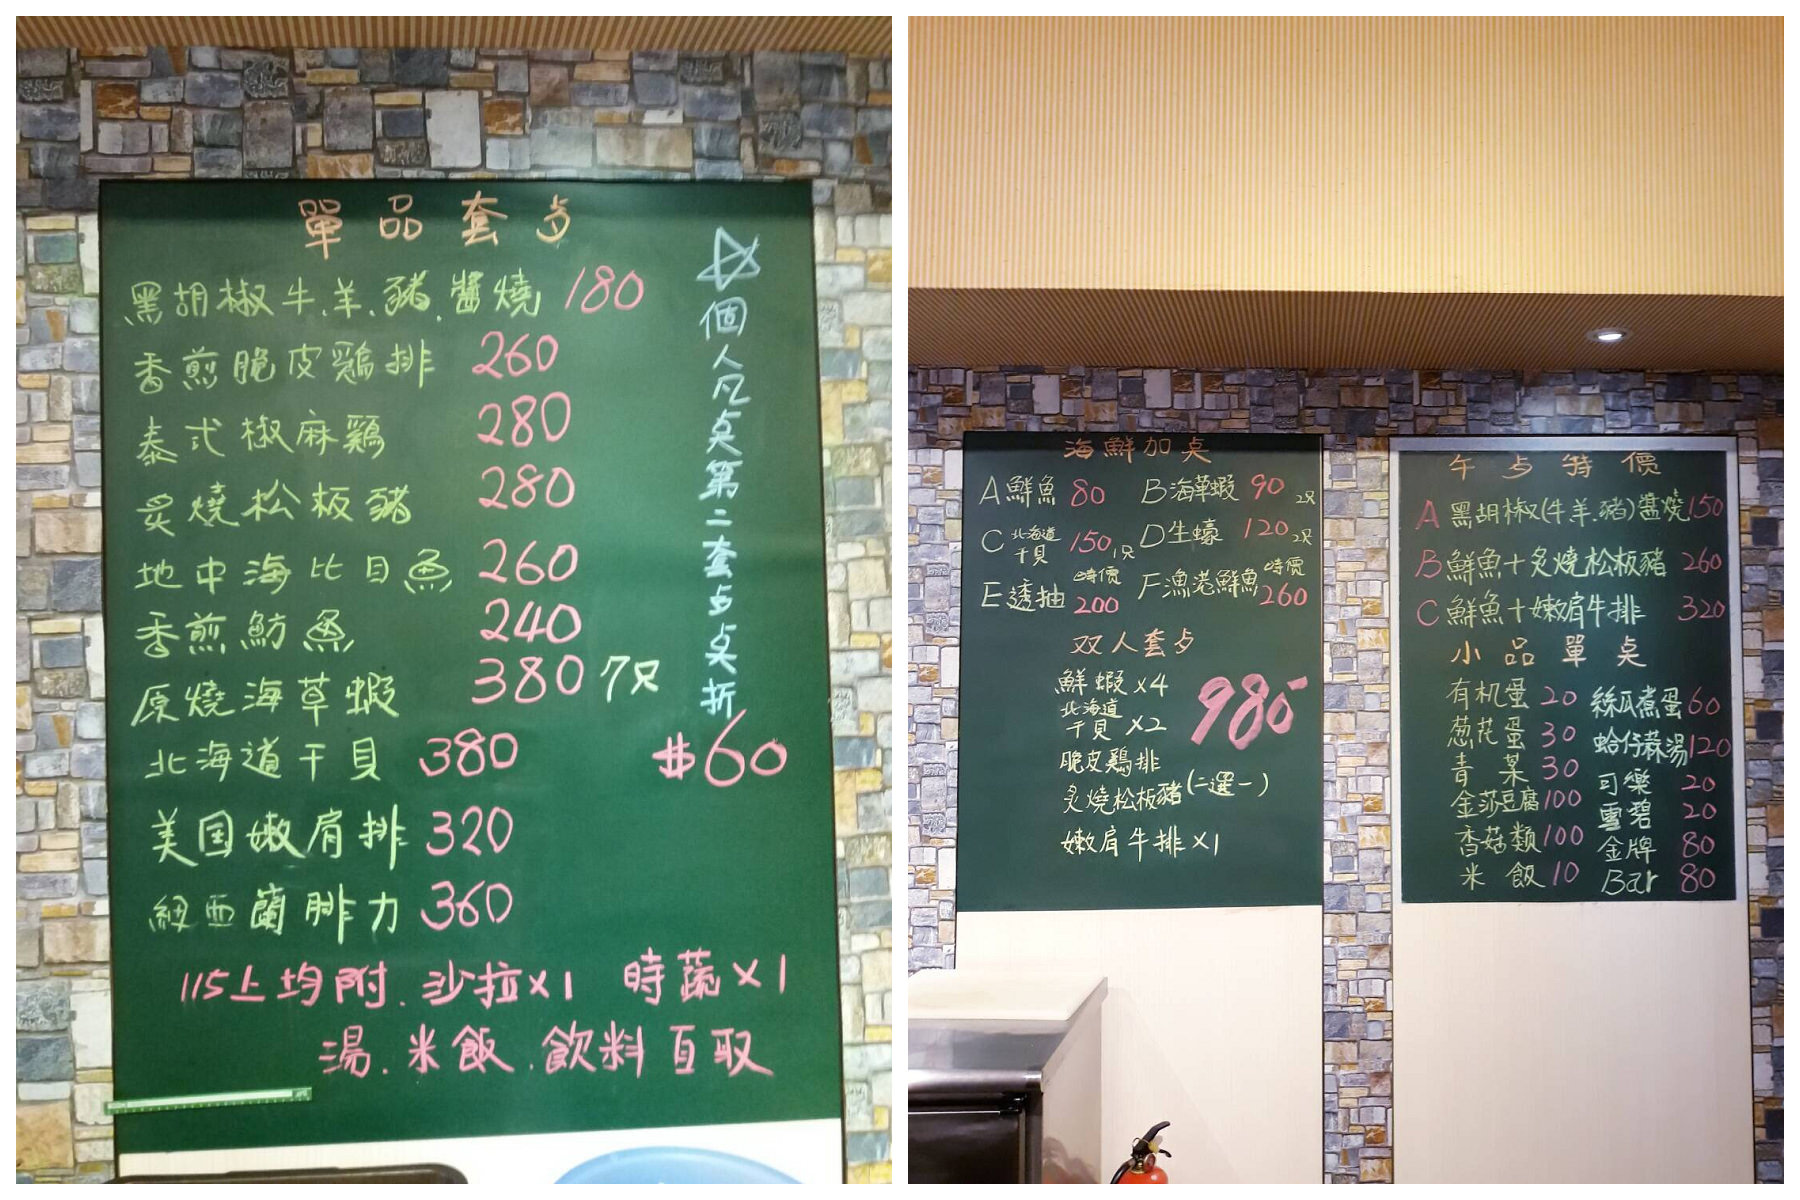 單品套点
黑胡椒牛.羊.豬.醬燒 180
香煎脆皮鷄排 260
泰式椒麻鷄 280
炙燒松板豬 280
地中海比目魚 260
香煎魴魚 240
原燒海草蝦 380 7只
北海道干貝 380
美国嫩肩排 320
紐西蘭腓力 360
以上均附.沙拉x1 時蔬x1
湯.米飯.飲料自取
☆個人凡桌第二套点桌折
$60
海鮮加桌
A鮮魚 80 B海草蝦 90 2只
C北海道干貝 150 1只 D生蠔 120 2只
E透抽 時價200 F漁港鮮魚 時價260
双人套点
鮮蝦x4 980
北海道
干貝x2
脆皮鷄排
炙燒松板豬(二選一)
嫩肩牛排x1
午点特價
A黑胡椒(牛.羊.豬)醬燒 150
B鮮魚+炙燒松板豬 260
C鮮魚+嫩肩牛排 320
小品單桌
有机蛋 20 絲瓜煮蛋 60
葱花蛋 30 蛤仔蒜湯 120
青菜 30 可樂 20
金莎豆腐 100 雪碧 20
香菇類 100 金牌 80
米飯 10 Bar 80